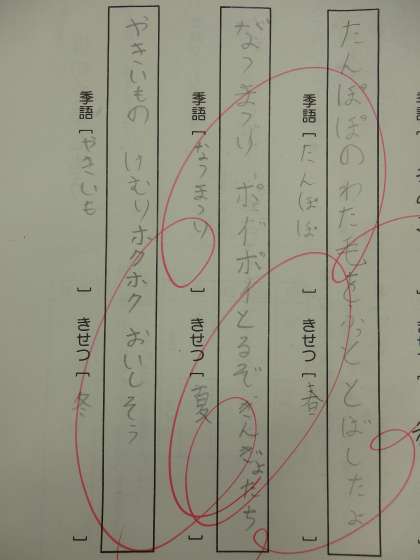 たんぽぽの わた毛を ふっと とばしたよ
季語[たんぽぽ] きせつ[春]
なつまつり ポイポイとるぞ きんぎょたち
季語[なつまつり] きせつ[夏]
やきいもの けむりホクホク おいしそう
季語[やきいも] きせつ[冬]